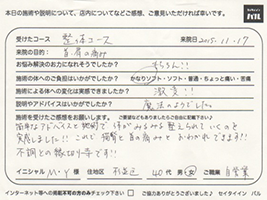 本日の施術や説明について、店内についてなどご感想、ご意見いただければ幸いです。
受けたコース 整体コース 来院日 2015.11.17
来院の目的: 首肩の痛み
お悩み解決のお力になれそうでしたか? もちろん!!
施術の体へのご負担はいかがでしたか? かなりソフト・ソフト・普通・ちょっと痛い・苦痛
施術による体への変化は実感できましたか? 激変!!
説明やアドバイスはいかがでしたか? 魔法のようでした。
施術を受けたご感想をお願いします。
簡単なアドバイスと施術で体がみるみる整えられていくのを
実感しました!! これで頭痛と首の痛みとおわかれできます!!
不調との縁切り寺です!!
イニシャル M・Y 様 住地区 40代 男・女 ご職業 自営業
インターネット等への掲載不可の方のみチェック下さい ご協力ありがとうございました セイタイイン バル